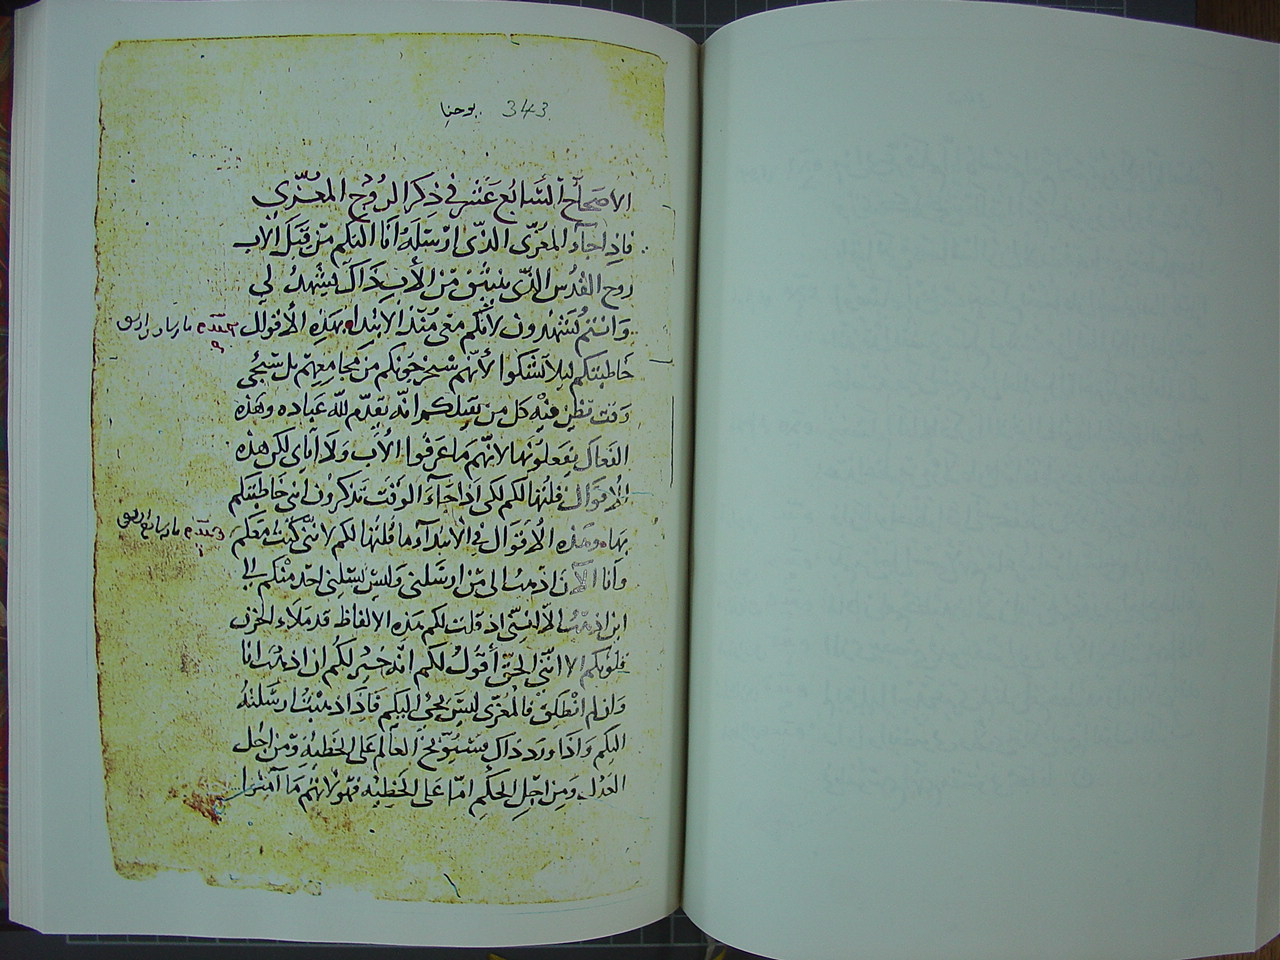 يوحنا 343
الاصحاح السابع عشر في ذكر الروح المعزي
فاذا جاء المعزى الذى ارسله انا اليكم من قبل الاب
روح القدس الذى ينبثق من الاب ذاك يشهد لي
وانتم تشهدون لانكم معى منذ الابتداء بهذه الاقوال
خاطبتكم ليلا تشكوا لانهم سيخرجونكم من مجامعهم بل سيجى
وقت يظن فيه كل من يقتلكم انه يقدم لله عباده وهذه
الفعال يفعلونها لانهم ما عرفوا الاب ولا اياى لكن هذه
الاقوال قلتها لكم لكى اذا جاء الوقت تذكرون اننى خاطبتكم
بها وهذه الاقوال في الابتداء ما قلتها لكم لاننى كنت معكم
وانا الآن اذهب الى من ارسلنى وليس يسلنى احد منكم الى
اين اذهب الا اننى اذ قلت لكم هذه الالفاظ قد ملاء الحزن
قلوبكم الا اننى الحق أقول لكم انه خير لكم ان اذهب انا
وان لم انطلق فالمعزى ليس يجئ اليكم فاذا ذهبت ارسلته
اليكم واذا ورد ذاك فسيوبخ العالم على الخطيه ومن اجل
العدل ومن اجل الحكم اما على الخطيه فهو لانهم ما آمنوا